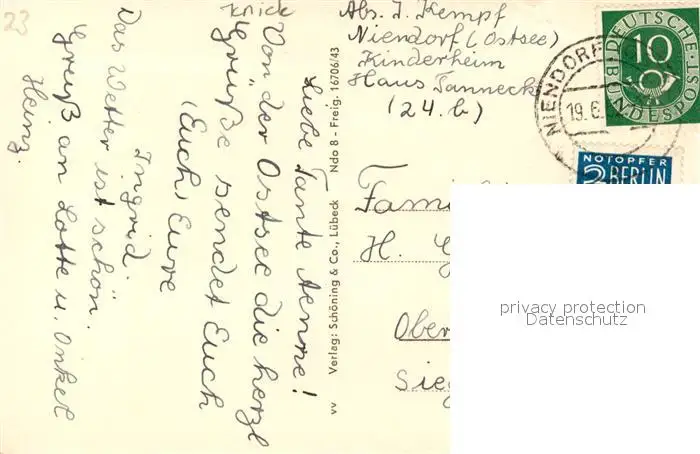 23
knick
Liebe Tante Aenne!
Von der Ostsee die herzl
Grüße sendet Euch
(Euch) Eure
Ingrid.
Das Wetter ist schön.
Gruß an Lotte u. Onkel
Heinz.
VV Verlag: Schöning & Co., Lübeck Ndo 8 - Freig. 16706/43
Abs. I. Kempf
Niendorf (Ostsee)
Kinderheim
Haus Tanneck
(24. b)
DEUTSCHE
10
BUNDESPO
NIENDORF
19.6.
NOTOPFER
2 BERLIN
Fami
H.
Ober
Sieg
privacy protection
Datenschutz